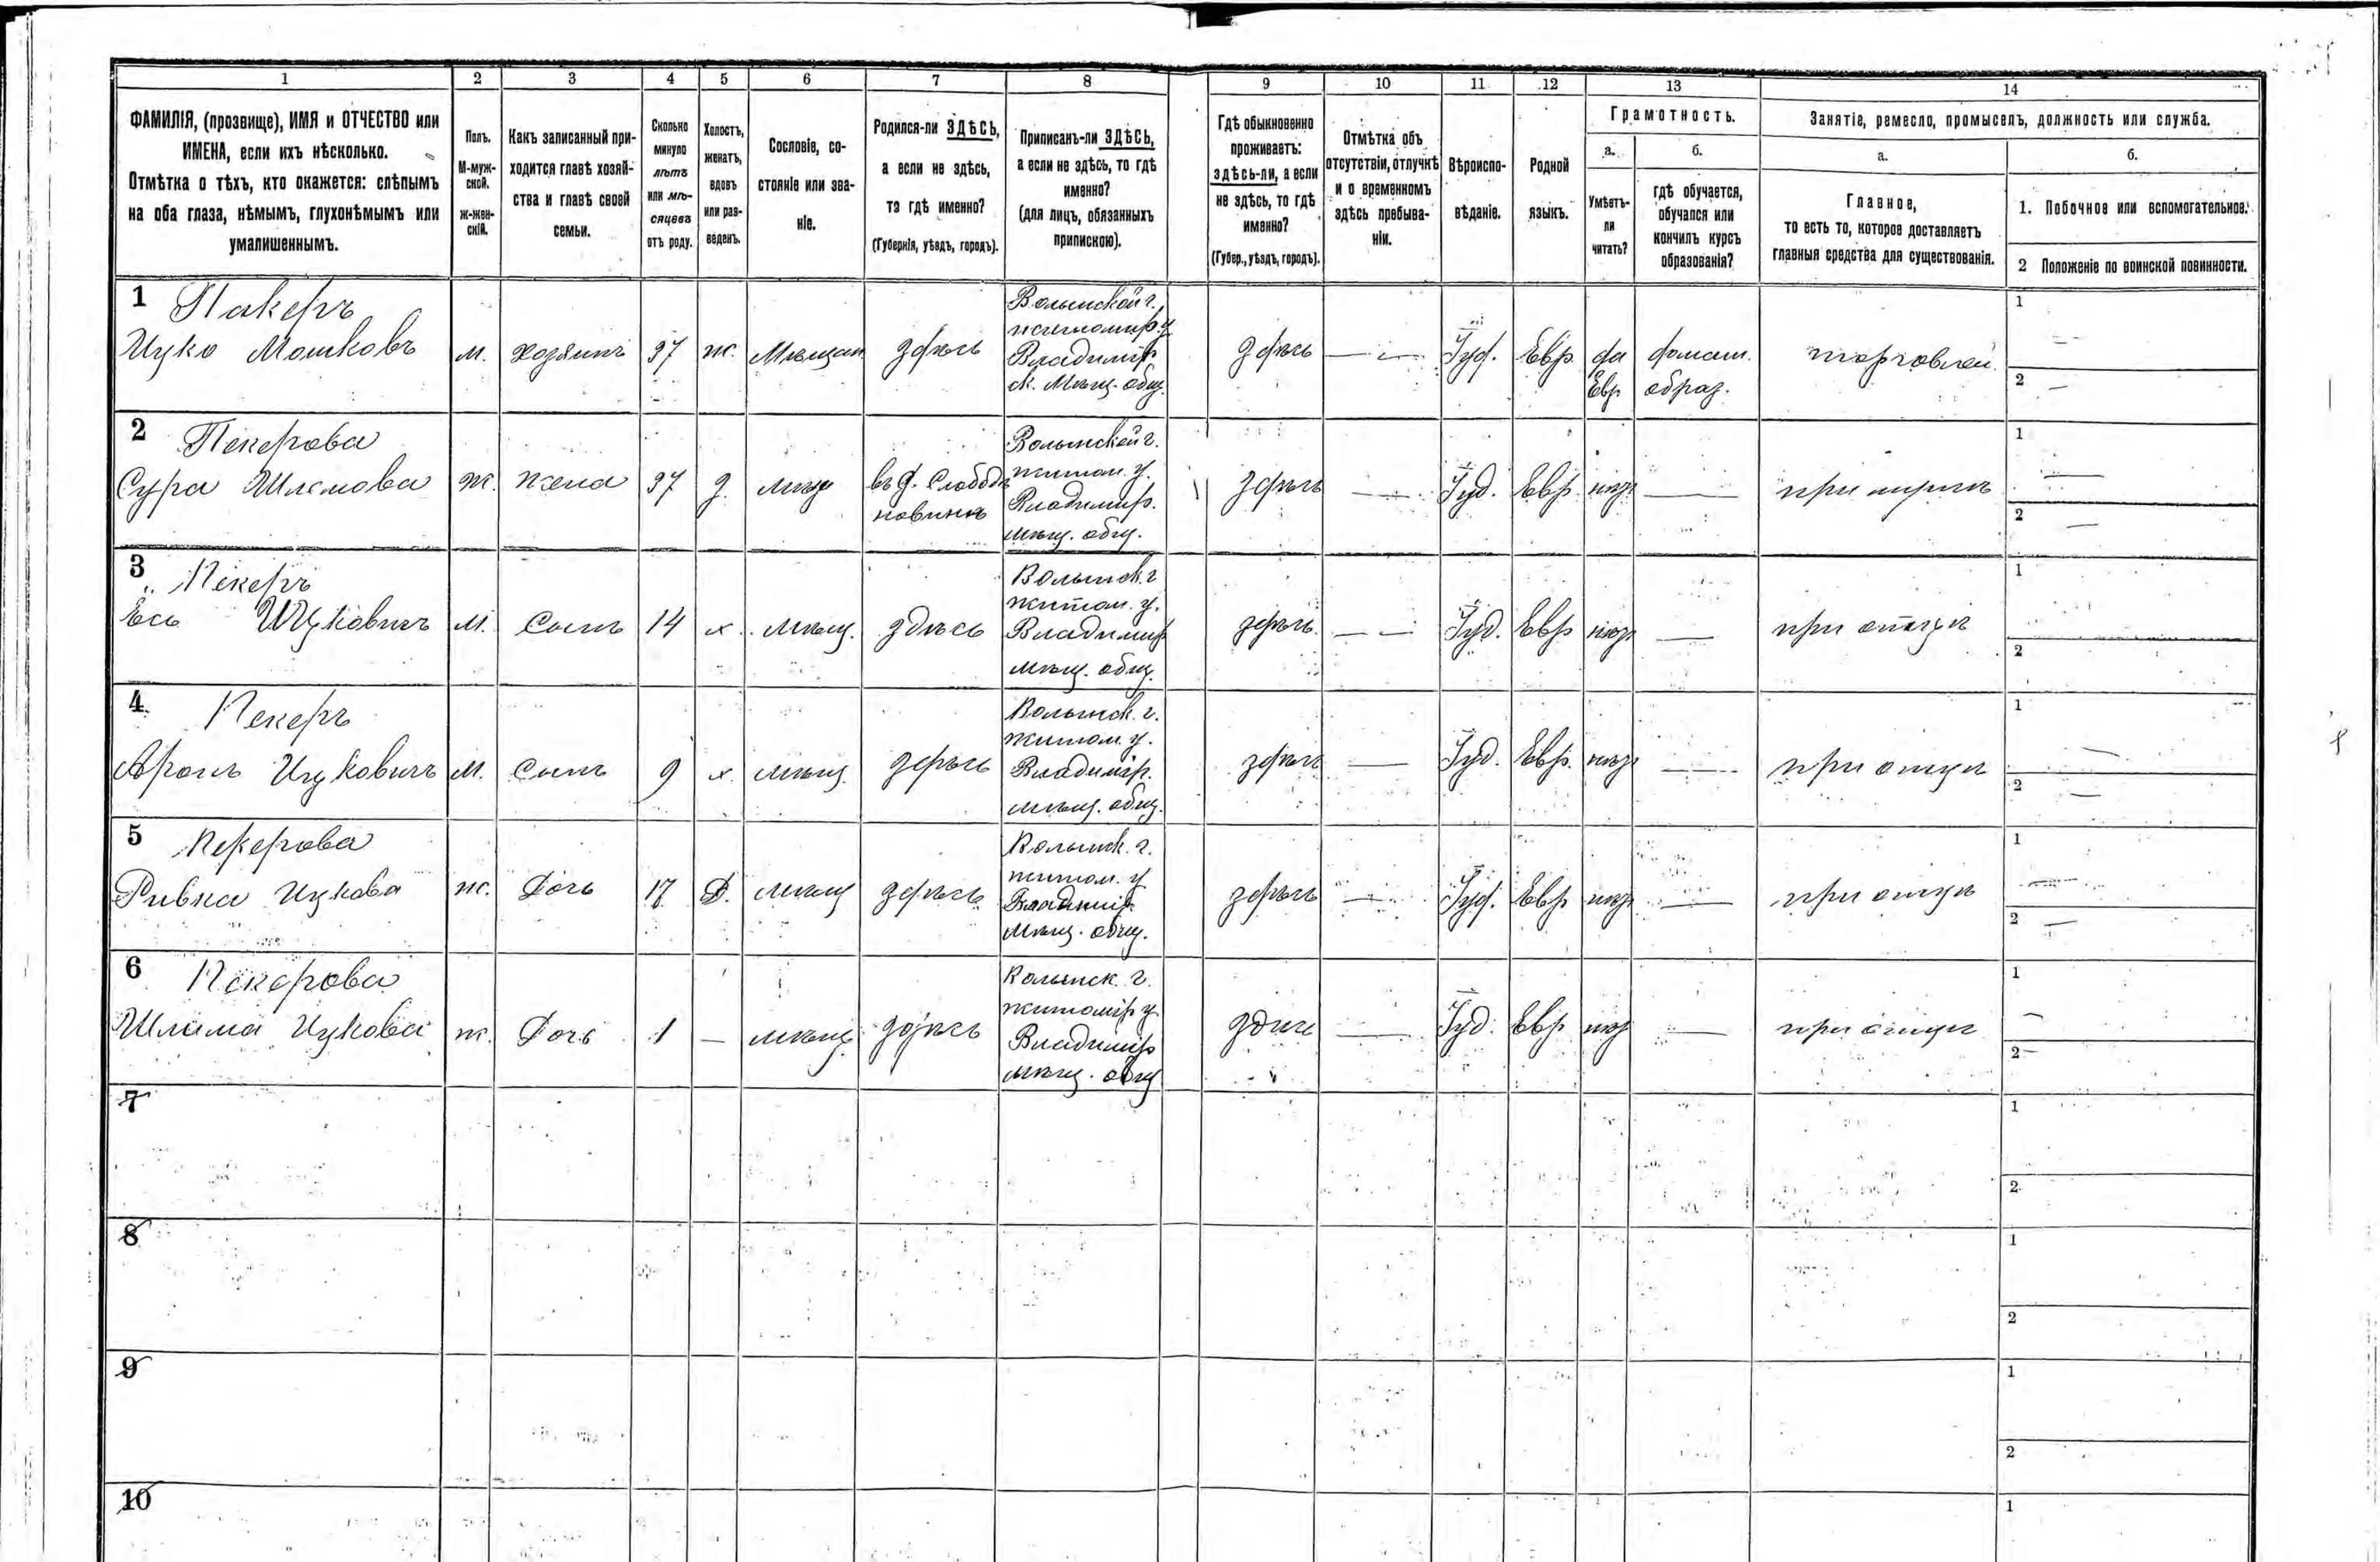 1 2 3 4 5 6 7 8 9 10 11 12 13 14
ФАМИЛІЯ, (прозвище), ИМЯ и ОТЧЕСТВО или
ИМЕНА, если ихъ нѣсколько.
Отмѣтка о тѣхъ, кто окажется: слѣпымъ
на оба глаза, нѣмымъ, глухонѣмымъ или
умалишеннымъ.
Полъ.
М-муж-
ской.
ж-жен-
скій.
Какъ записанный при-
ходится главѣ хозяй-
ства и главѣ своей
семьи.
Сколько
минуло
лѣтъ
или мѣ-
сяцевъ
отъ роду.
Холостъ,
женатъ,
вдовъ
или раз-
веденъ.
Сословіе, со-
стояніе или зва-
ніе.
Родился-ли ЗДѢСЬ,
а если не здѣсь,
то гдѣ именно?
(Губернія, уѣздъ, городъ).
Приписанъ-ли ЗДѢСЬ,
а если не здѣсь, то гдѣ
именно?
(для лицъ, обязанныхъ
припискою).
Гдѣ обыкновенно
проживаетъ:
здѣсь-ли, а если
не здѣсь, то гдѣ
именно?
(Губер., уѣздъ, городъ).
Отмѣтка объ
отсутствіи, отлучкѣ
и о временномъ
здѣсь пребыва-
ніи.
Вѣроиспо-
вѣданіе.
Родной
языкъ.
Грамотность.
а.
Умѣетъ-
ли
читать?
б.
гдѣ обучается,
обучался или
кончилъ курсъ
образованія?
Занятіе, ремесло, промыселъ, должность или служба.
а.
Главное,
то есть то, которое доставляетъ
главныя средства для существованія.
б.
1. Побочное или вспомогательное.
2 Положеніе по воинской повинности.
1 Пакеръ
Ицко Мошковъ
м.
хозяинъ
37
ж.
Мѣщан
здѣсь
Волынской г.
житомир. у
Владимір
ск. Мѣщ. общ.
здѣсь
Іуд.
Евр
да
Евр.
домаш.
образ.
торговлей
1
2
2 Пекерова
Сура Шлемова
ж.
жена
37
з.
мѣщ
въ д. Слобод
Волынской г.
житом. у.
Владимир.
мѣщ. общ.
здѣсь
Іуд.
Евр
при мужѣ
1
2
3 Пекеръ
Ицковичъ
м.
Сынъ
14
х.
мѣщ.
здѣсь
Волынск. г
житом. у.
Владимир
мѣщ. общ.
здѣсь
Іуд.
Евр
при отцѣ
1
2
4 Пекеръ
Аронъ Ицковичъ
м.
Сынъ
9
х.
мѣщ.
здѣсь
Волынск. г.
житом. у.
Владимір.
мѣщ. общ.
здѣсь
Іуд.
Евр.
при отцѣ
1
2
5 Пекерова
Ривка Ицкова
ж.
Дочь
17
Д.
мѣщ
здѣсь
Волынск. г.
житом. у
Владимир
Мѣщ. общ.
здѣсь
Іуд.
Евр
при отцѣ
1
2
6 Пекерова
Ицкова
ж.
Дочь
1
мѣщ
здѣсь
Волынск. г.
житомір у
Владимір
мѣщ. общ
здѣсь
Іуд.
Евр
при отцѣ
1
2
7
1
2
8
1
2
9
1
2
10
1